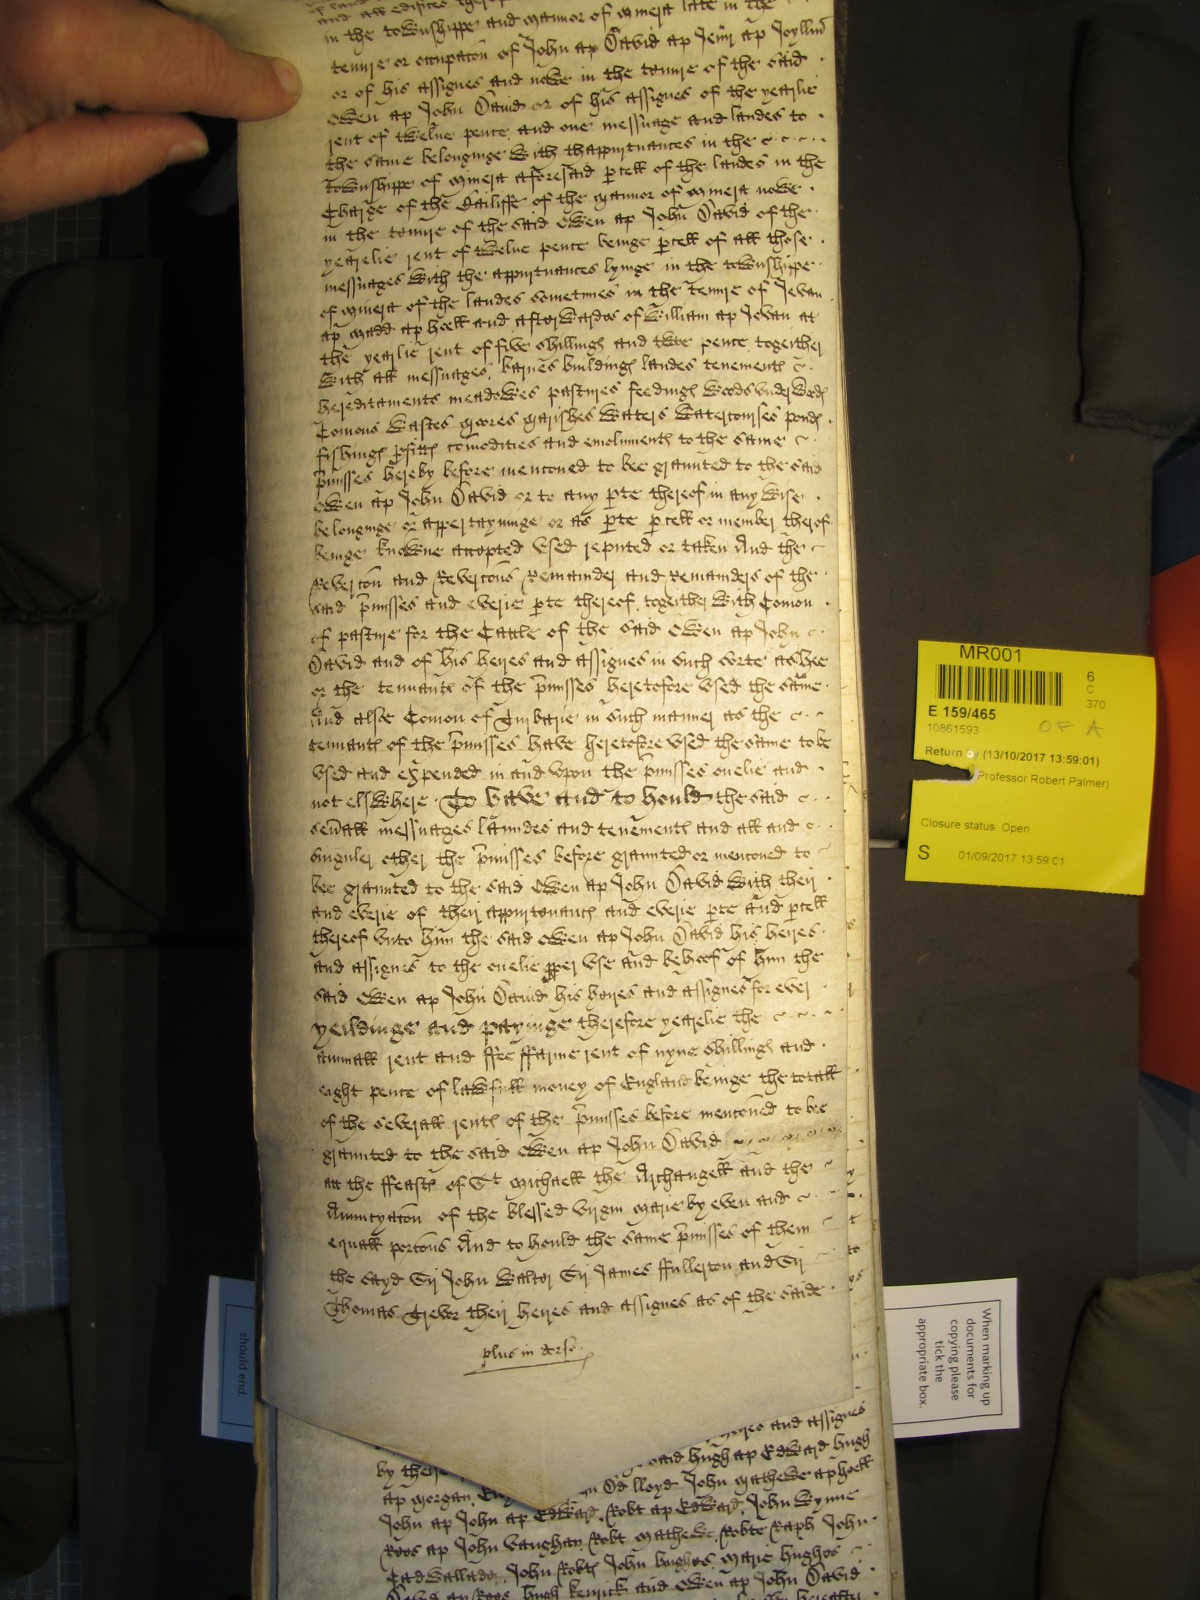 and all edifices
in the towneshippe and mannor of Minera late in the
tenure or occupacõn of John ap David ap Jenn ap Joyllin
or of his assignes and nowe in the tenure of the said
Owen ap John David or of his assignes of the yearlie
rent of twelve pence and one messuage and landes to
the same belonginge with thappurtnances in the
Towneshippe of Minera aforesaid pcell of the landes in the
Charge of the Bailiffe of the Mannor of Minera nowe
in the tenure of the said Owen ap John David of the
yearelie rent of twelve pence beinge pcell of all those
messuages with the appurtnances lyinge in the towneshippe
of Minera of the landes sometimes in the tenure of Jevan
ap Madd ap Hoell and afterwardes of William ap Jevan at
the yearlie rent of five shillings and two pence together
with all messuages, barnes buildings landes tenements
hereditaments meadowes pastures feedings woods underwoods
Comons wastes moores marishes waters watercourses ponds
fishings pfitts comodities and emoluments to the same
pmisses hereby before mencõned to bee graunted to the said
Owen ap John David or to any pte thereof in any wise
belonginge or appertayninge or as pte pcell or member therof
beinge knowne accepted used reputed or taken And the
Revercõn and Revercõns Remainder and Remainders of the
said pmisses and everie pte thereof, together with Comon
of pasture for the Cattle of the said Owen ap John
David and of his heires and assignes in such sorte as hee
or the tennants of the pmisses heretofore used the same
And alsoe Comon of Turbarie in such manner as the
tennants of the pmisses have heretofore used the same to be
used and expended in and upon the pmisses onelie and
not elswhere To have and to hould the said
sevall messuages laundes and tenements and all and
singuler other the pmisses before graunted or mencõned to
bee graunted to the said Owen ap John David with their
and everie of their appurtenancs and everie pte and pcell
thereof unto him the said Owen ap John David his heires
and assignes to the onelie pper use and behoof of him the
said Owen ap John David his heires and assignes for ever
yeildinge and payinge therefore yearelie the
annuall rent and ffee ffarme rent of nyne shillings and
eight pence of lawfull money of England beinge the totall
of the severall rents of the pmisses before mencõned to bee
graunted to the said Owen ap John David
att the ffeasts of St Michaell the Archangell and the
Annuntyacõn of the blessed virgin Marie by even and
equall porcõns And to hould the same pmisses of them
the sayd Sir John Walter Sir James ffullerton and Sir
Thomas Trevor their heires and assignes as of the saide
plus in dorso
heires and assignes
by their said Hugh ap Edward Hugh
ap Morgan, lloyd John Mathewe ap Hoell
John ap John ap Edward, Robt ap Edward, John Wynne
Roos ap John Vaughan Robt Mathewe, Robte Raph John
Cadwallader, John Robts John Hughes Marie Hughes
David ap Roos Hugh Kenrick and Owen ap John David
MR001
6
C
370
E 159/465
10861593
OF A
Return by (13/10/2017 13:59:01)
Professor Robert Palmer)
Closure status: Open
S 01/09/2017 13:59:01
When marking up
documents for
copying please
tick the
appropriate box.
should end.